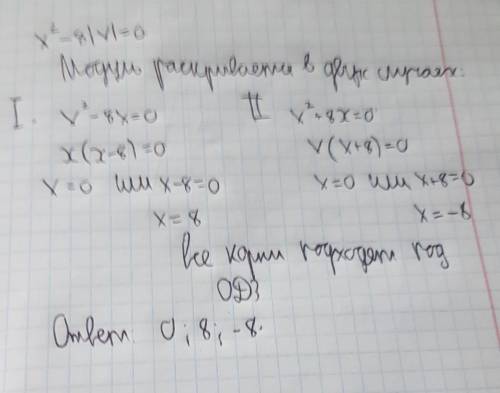 x² - 8|x| = 0
Модуль раскрывается в двух случаях:
I. x² - 8x = 0 II x² + 8x = 0
x(x-8) = 0 x(x+8) = 0
x = 0 или x-8 = 0 x = 0 или x+8 = 0
x = 8 x = -8
Все корни подходят под
ОДЗ
Ответ: 0; 8; -8.